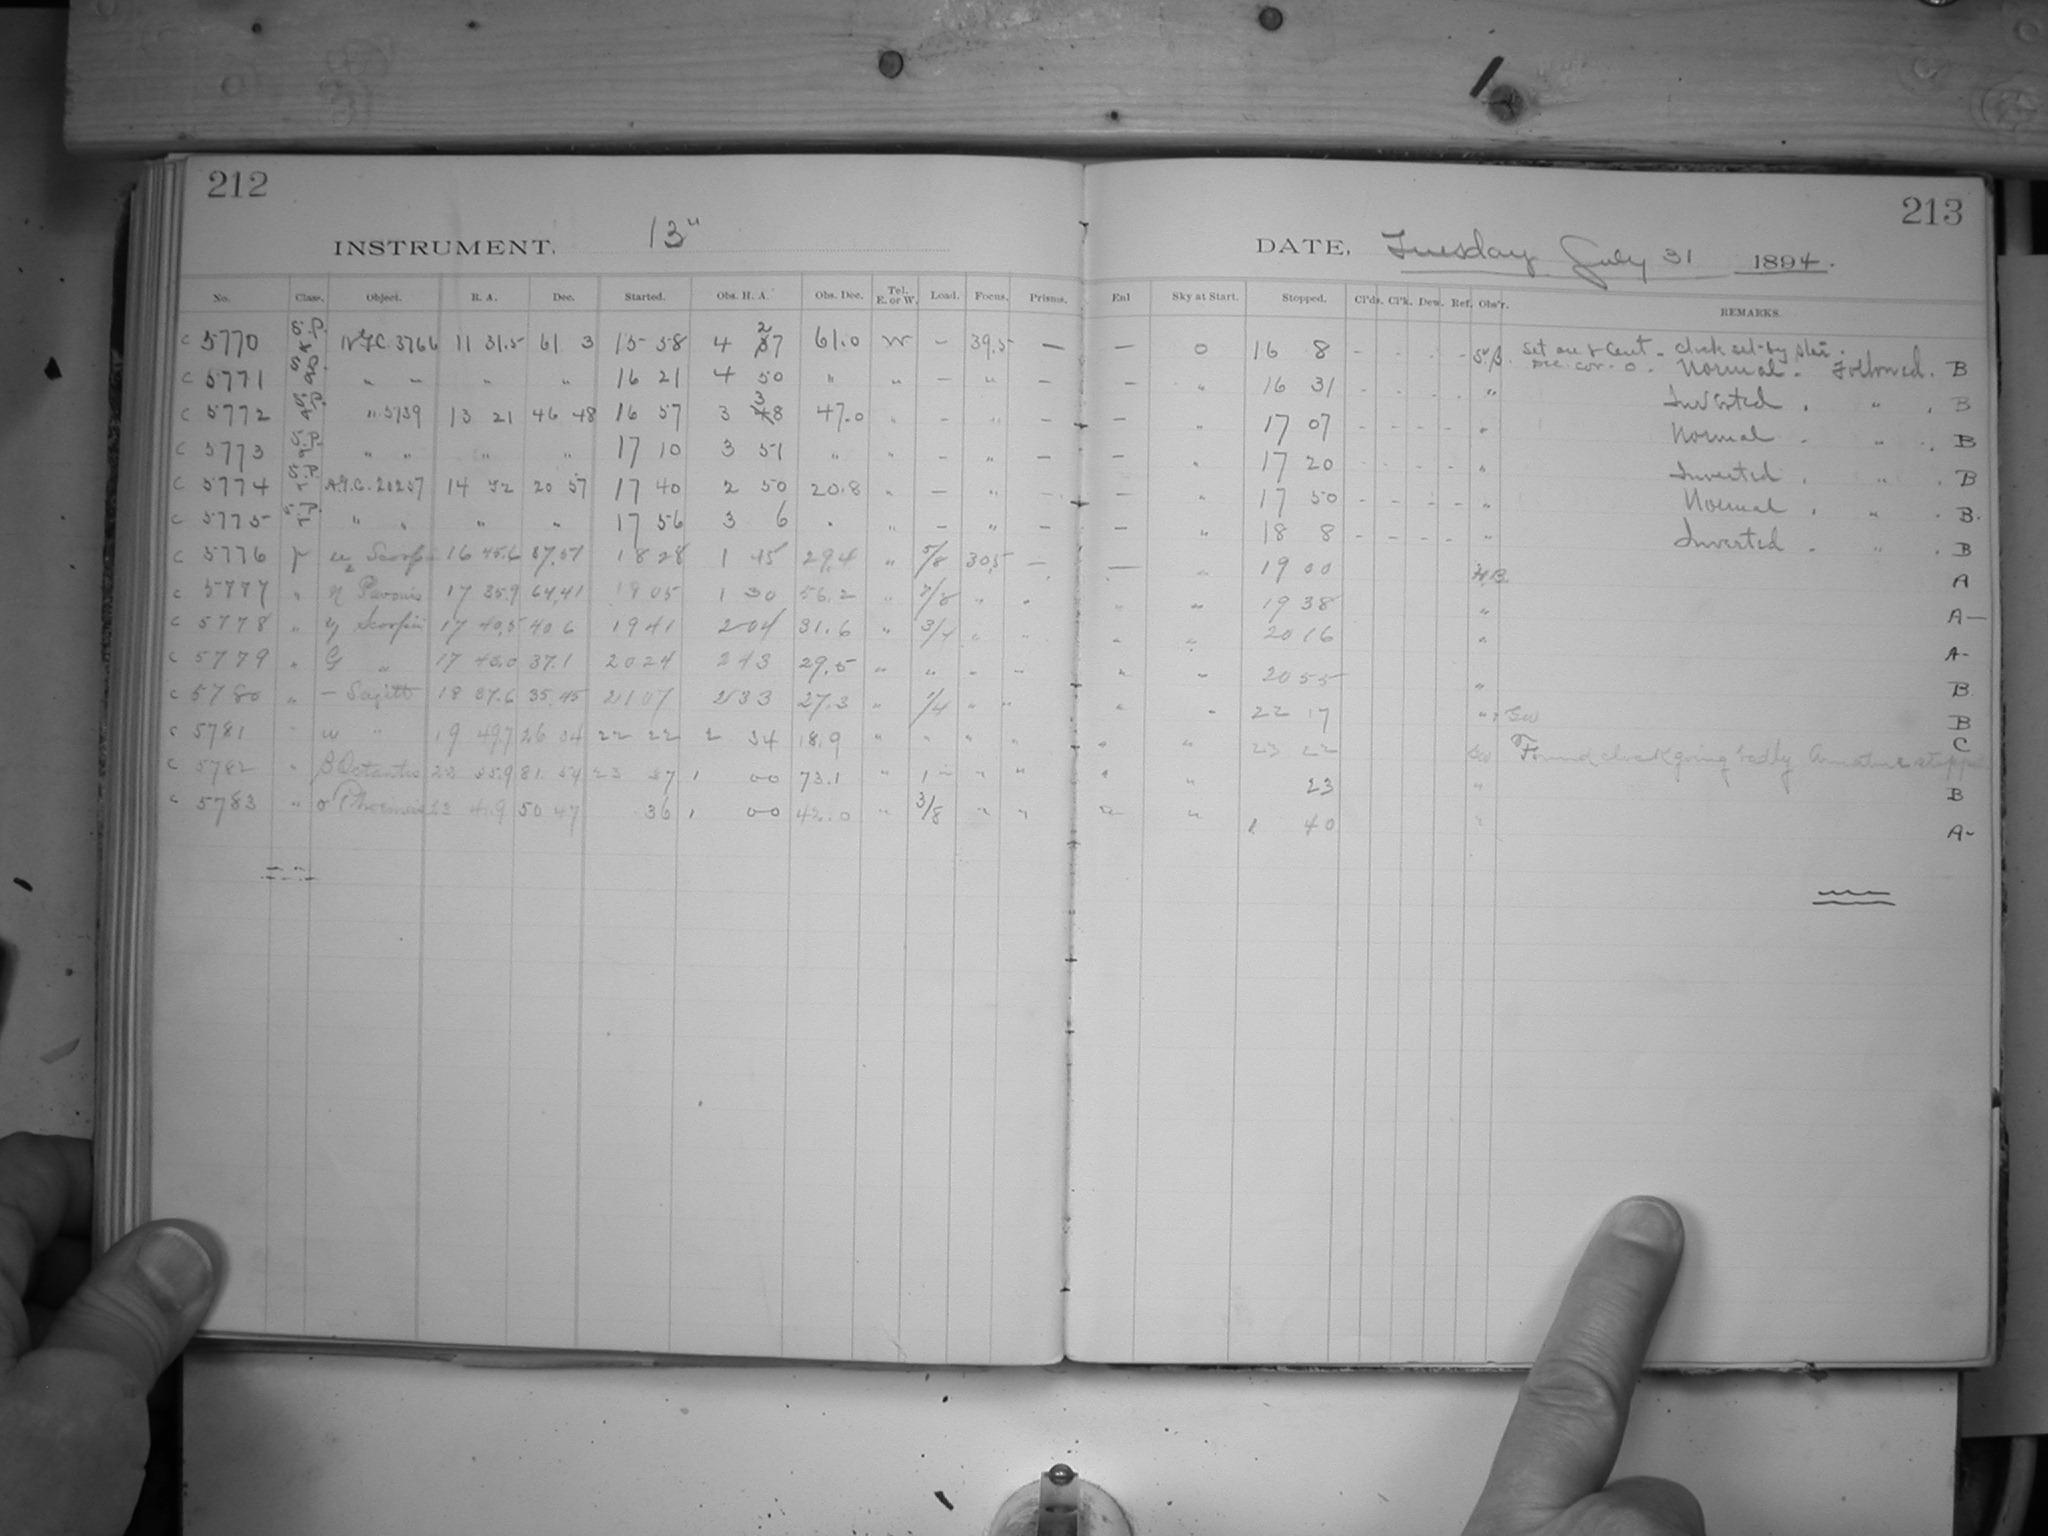 212
INSTRUMENT, 13"
No. Class. Object. R. A. Dec. Started. Obs. H. A. Obs. Dec. Tel. E. or W. Load. Focus. Prisms.
c 5770 N.G.C. 3766 11 31.5 61 3 15 58 4 27 61.0 W - 39.5 —
c 5771 " " " " 16 21 4 50 " " - " —
c 5772 " 5139 13 21 46 48 16 57 3 38 47.0 " - " —
c 5773 " " " " 17 10 3 51 " " - " —
c 5774 A.G.C. 20207 14 52 20 57 17 40 2 50 20.8 " — " —
c 5775 " " " " 17 56 3 6 " " - " —
c 5776 Scorpii 16 45.6 37.51 18 28 1 45 29.4 " 5/8 30.5 —
c 5777 " η Pavonis 17 35.9 64.41 19 05 1 30 56.2 " 7/8 " "
c 5778 " Scorpii 17 40.5 40 6 19 41 2 04 31.6 " 3/4 " "
c 5779 " G " 17 43.0 37.1 20 24 2 43 29.5 " " " "
c 5780 " — Sagitt 18 37.6 35.45 21 07 2 33 27.3 " 1/4 " "
c 5781 " ω " 19 49.7 26 34 22 22 2 34 18.9 " " " "
c 5782 " β Octantis 22 35.9 81 54 23 37 1 00 73.1 " 1 " "
c 5783 " σ Phoenicis 23 41.9 50 47 36 1 00 42.0 " 3/8 " "
213
DATE, Tuesday July 31 1894.
Enl Sky at Start. Stopped. Cl'ds. Cl'k. Dew. Ref. Obs'r. REMARKS.
— 0 16 8 - - - - S.B. Set one & Cent. Clock set by star.
Dec. cor. 0. Normal. Followed. B
— " 16 31 - - - - " Inverted . " . B
— " 17 07 - - - - " Normal . " . B
— " 17 20 - - - - " Inverted . " . B
— " 17 50 - - - - " Normal . " . B.
— " 18 8 - - - - " Inverted . " . B
— " 19 00 A
" " 19 38 " A—
" " 20 16 " A-
" " 20 55 " B
" " 22 17 " B
" " 23 22 Found clock going badly Armature C
" " 23 " B
" " 1 40 " A-